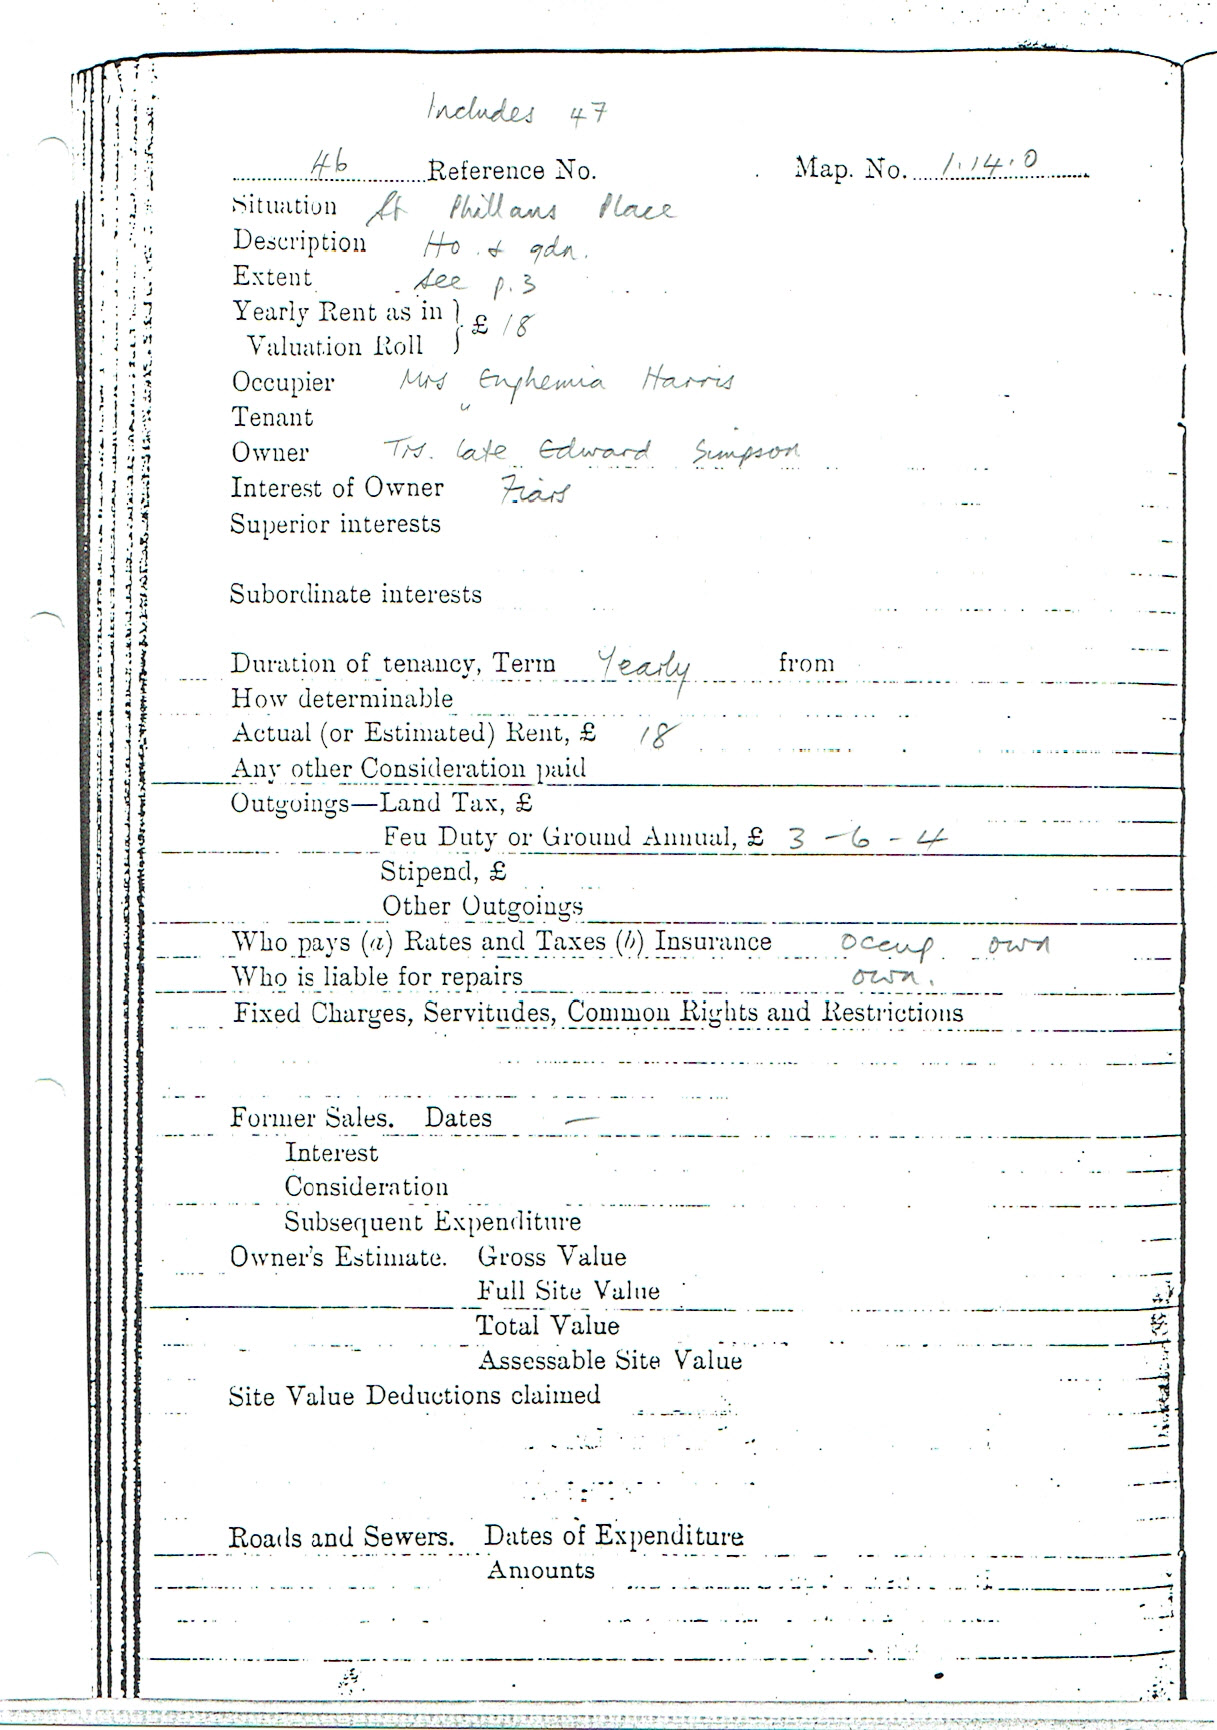 Includes 47
46 Reference No. Map. No. 1.14.0
Situation St Phillans Place
Description Ho. & gdn.
Extent see p.3
Yearly Rent as in
Valuation Roll } £ 18
Occupier Mrs Euphemia Harris
Tenant "
Owner Trs. late Edward Simpson
Interest of Owner Fiars
Superior interests
Subordinate interests
Duration of tenancy, Term Yearly from
How determinable
Actual (or Estimated) Rent, £ 18
Any other Consideration paid
Outgoings—Land Tax, £
Feu Duty or Ground Annual, £ 3-6-4
Stipend, £
Other Outgoings
Who pays (a) Rates and Taxes (b) Insurance occup own
Who is liable for repairs own.
Fixed Charges, Servitudes, Common Rights and Restrictions
Former Sales. Dates —
Interest
Consideration
Subsequent Expenditure
Owner's Estimate. Gross Value
Full Site Value
Total Value
Assessable Site Value
Site Value Deductions claimed
Roads and Sewers. Dates of Expenditure
Amounts